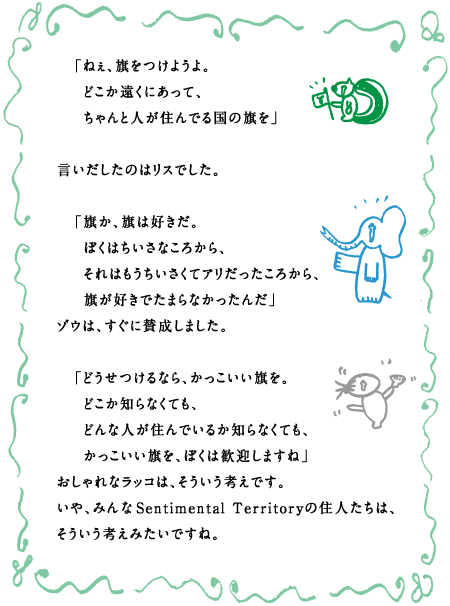 「ねぇ、旗をつけようよ。
どこか遠くにあって、
ちゃんと人が住んでる国の旗を」
言いだしたのはリスでした。
「旗か、旗は好きだ。
ぼくはちいさなころから、
それはもうちいさくてアリだったころから、
旗が好きでたまらなかったんだ」
ゾウは、すぐに賛成しました。
「どうせつけるなら、かっこいい旗を。
どこか知らなくても、
どんな人が住んでいるか知らなくても、
かっこいい旗を、ぼくは歓迎しますね」
おしゃれなラッコは、そういう考えです。
いや、みんなSentimental Territoryの住人たちは、
そういう考えみたいですね。